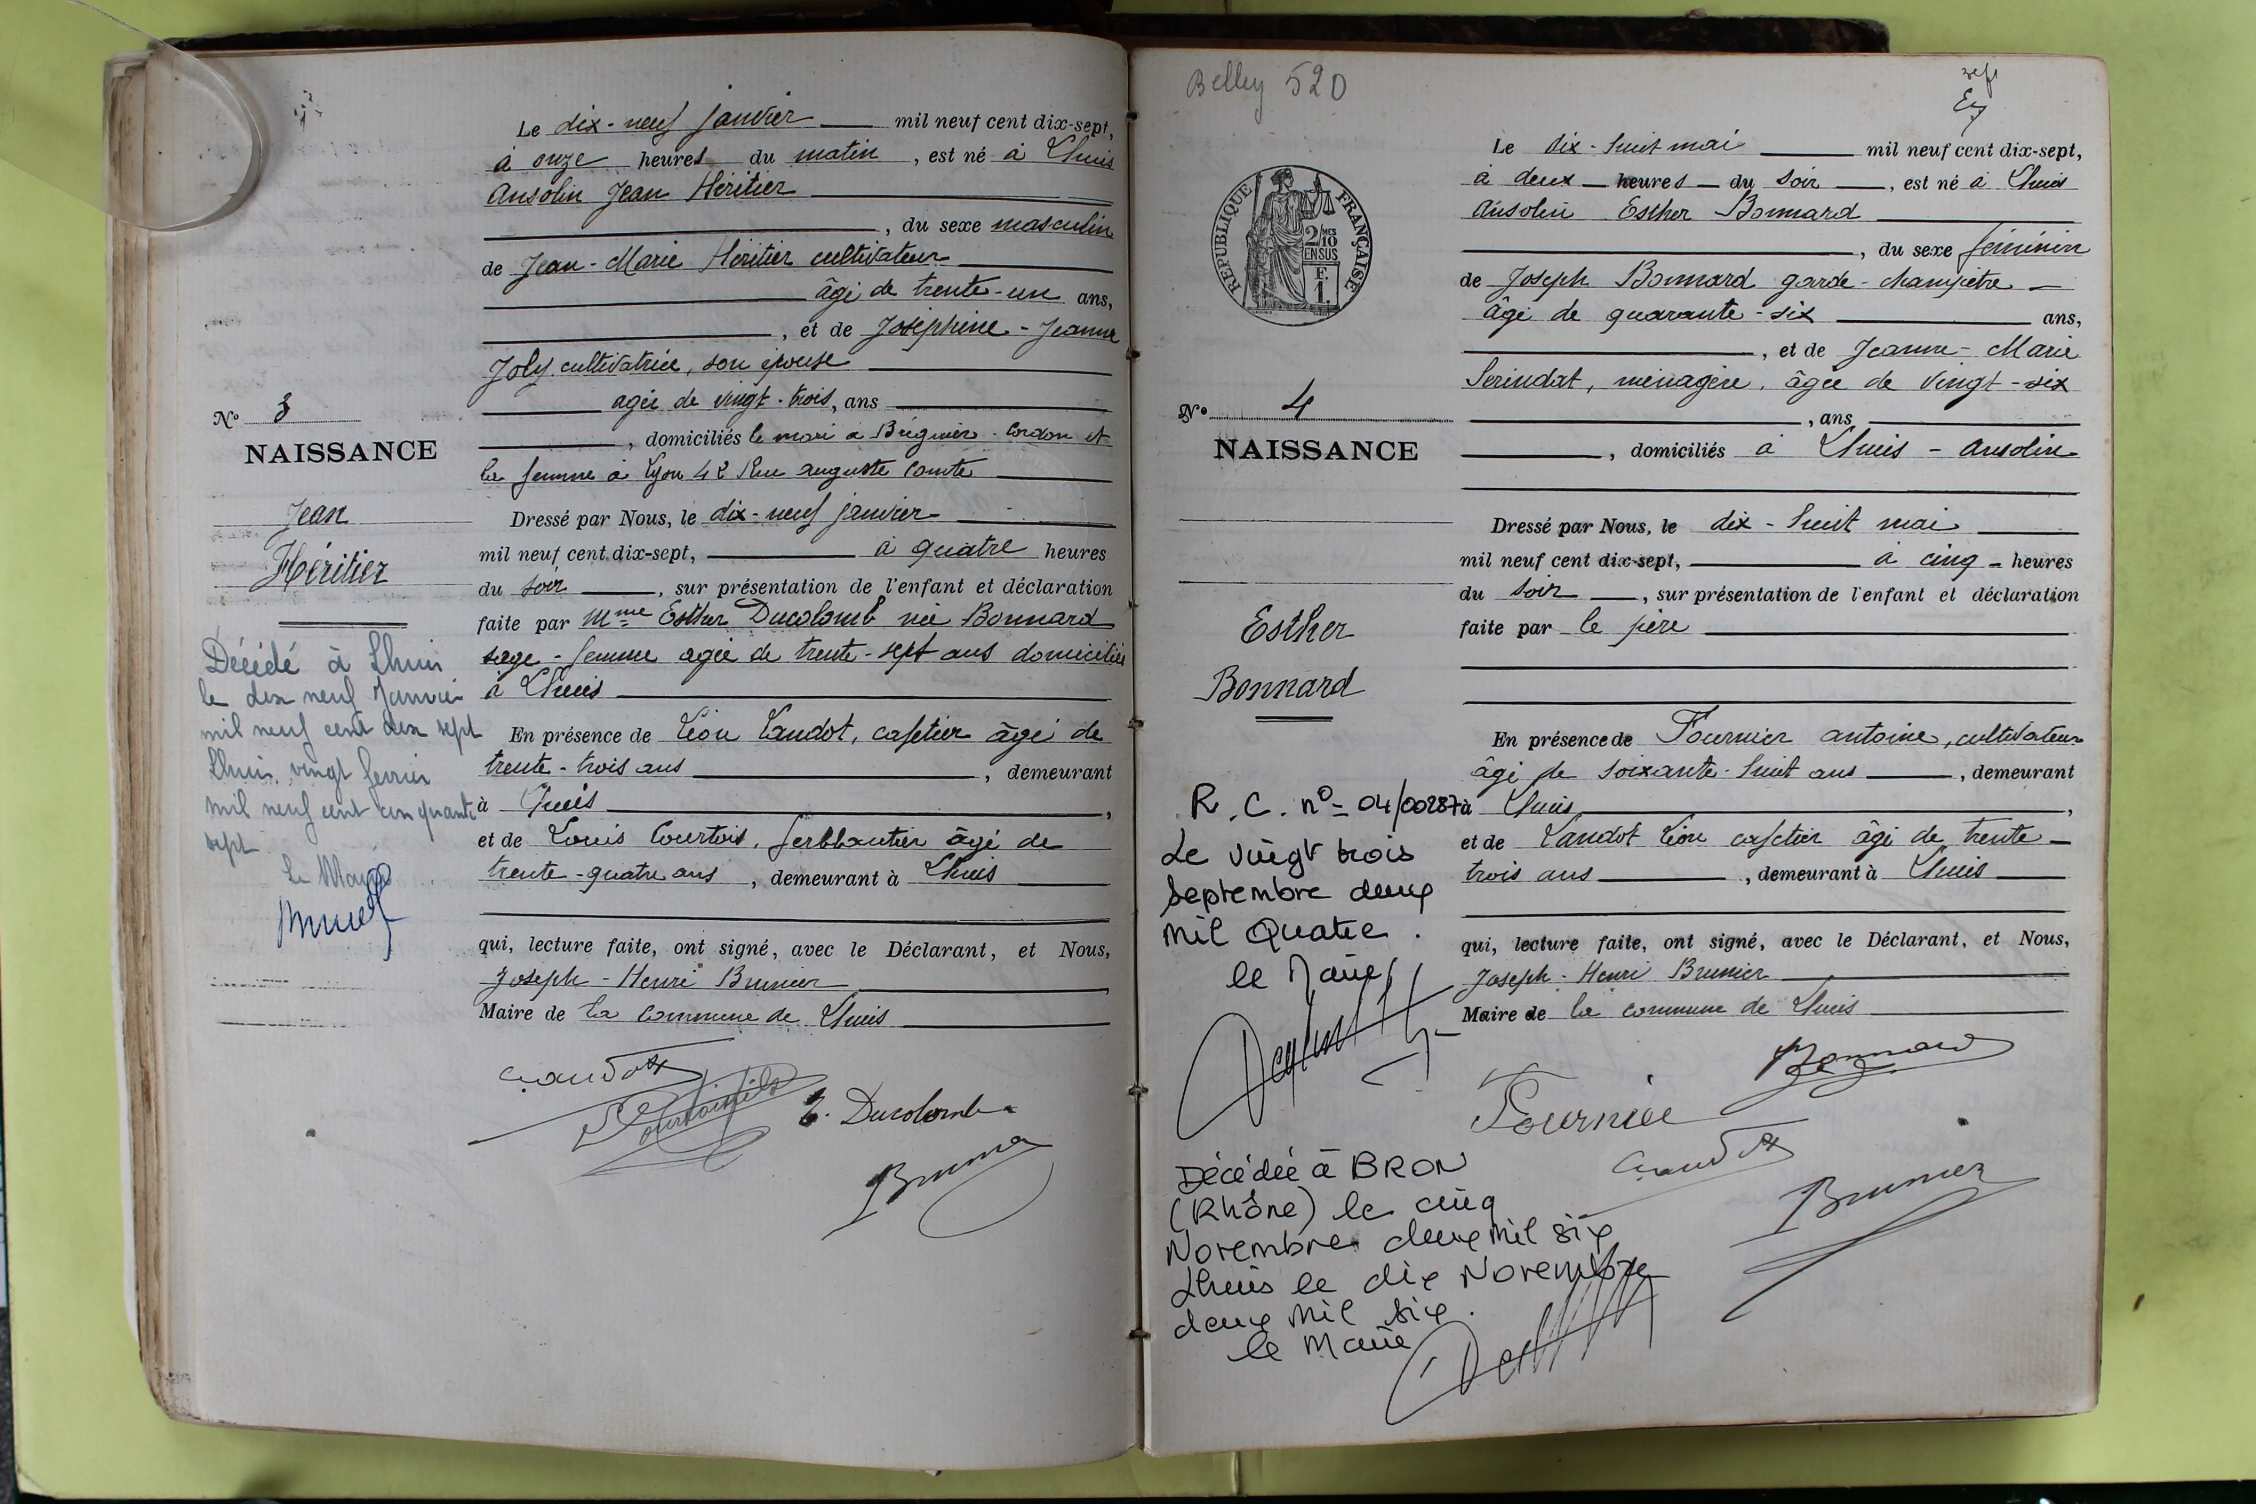 Le dix-neuf janvier mil neuf cent dix-sept,
à onze heures du matin, est né à Lhuis
Ansolin Jean Héritier
, du sexe masculin
de Jean-Marie Héritier cultivateur
âgé de trente-un ans,
, et de Joséphine-Jeanne
Joly cultivatrice, son épouse
agée de vingt-trois, ans
, domiciliés le mari à Brégnier-Cordon et
la femme à Lyon 42 Rue Auguste Comte
N° 3
NAISSANCE
Jean
Héritier
Dressé par Nous, le dix-neuf janvier
mil neuf cent dix-sept, à quatre heures
du soir, sur présentation de l'enfant et déclaration
faite par Mme Esther Ducolomb née Bonnard
sage-femme agée de trente-sept ans domiciliée
à Lhuis
Décédé à Lhuis
le dix neuf Janvier
mil neuf cent dix sept
Lhuis, vingt fevrier
mil neuf cent cinquante
sept
Le Maire
En présence de Léon Vaudot, cafetier âgé de
trente-trois ans, demeurant
à Lhuis,
et de Louis Courtois, ferblantier âgé de
trente-quatre ans, demeurant à Lhuis
qui, lecture faite, ont signé, avec le Déclarant, et Nous,
Joseph-Henri Brunier
Maire de la commune de Lhuis
E. Ducolomb
Brunier
Belley 520
REPUBLIQUE FRANÇAISE
2/10 MES
EN SUS
F.
1.
Le dix-huit mai mil neuf cent dix-sept,
à deux heures du soir, est né à Lhuis
Ansolin Esther Bonnard
, du sexe féminin
de Joseph Bonnard garde-champêtre
âgé de quarante-six ans,
, et de Jeanne-Marie
Serindat, ménagère, âgée de vingt-six
, ans
, domiciliés à Lhuis-Ansolin
N° 4
NAISSANCE
Esther
Bonnard
Dressé par Nous, le dix-huit mai
mil neuf cent dix-sept, à cinq heures
du soir, sur présentation de l'enfant et déclaration
faite par le père
En présence de Fournier Antoine, cultivateur
âgé de soixante-huit ans, demeurant
à Lhuis,
et de Vaudot Léon cafetier âgé de trente-
trois ans, demeurant à Lhuis
qui, lecture faite, ont signé, avec le Déclarant, et Nous,
Joseph-Henri Brunier
Maire de la commune de Lhuis
R.C. n° 04/00287
Le vingt trois
Septembre deux
mil Quatre.
le Maire
Bonnard
Fournier
Brunier
Décédée à BRON
(Rhône) le cinq
Novembre deux mil six
Lhuis le dix Novembre
deux mil six.
le Maire